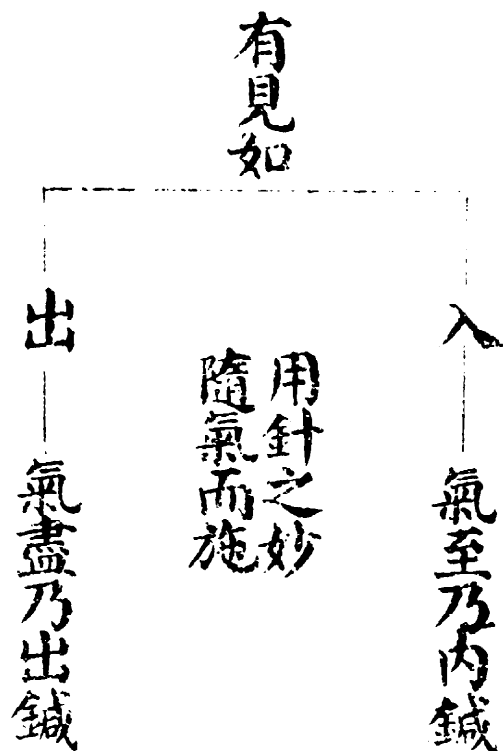 有見如
入
氣至乃内鍼
用針之妙
隨氣而施
出
氣盡乃出鍼